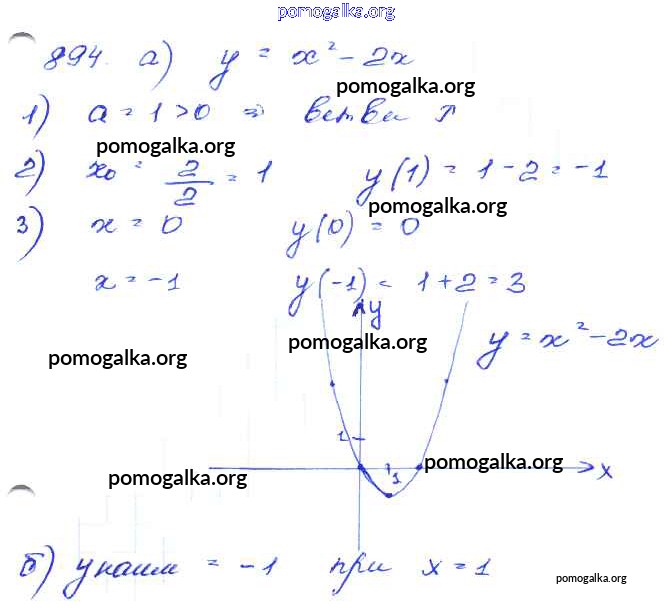 pomogalka.org
894. а) y = x² - 2x
pomogalka.org
1) a = 1 > 0 ⇒ ветви ↑
pomogalka.org
2) x₀ = 2/2 = 1 y(1) = 1 - 2 = -1
pomogalka.org
3) x = 0 y(0) = 0
x = -1 y(-1) = 1 + 2 = 3
y
pomogalka.org y = x² - 2x
pomogalka.org
1
pomogalka.org x
pomogalka.org 1
б) yнаим = -1 при x = 1
pomogalka.org